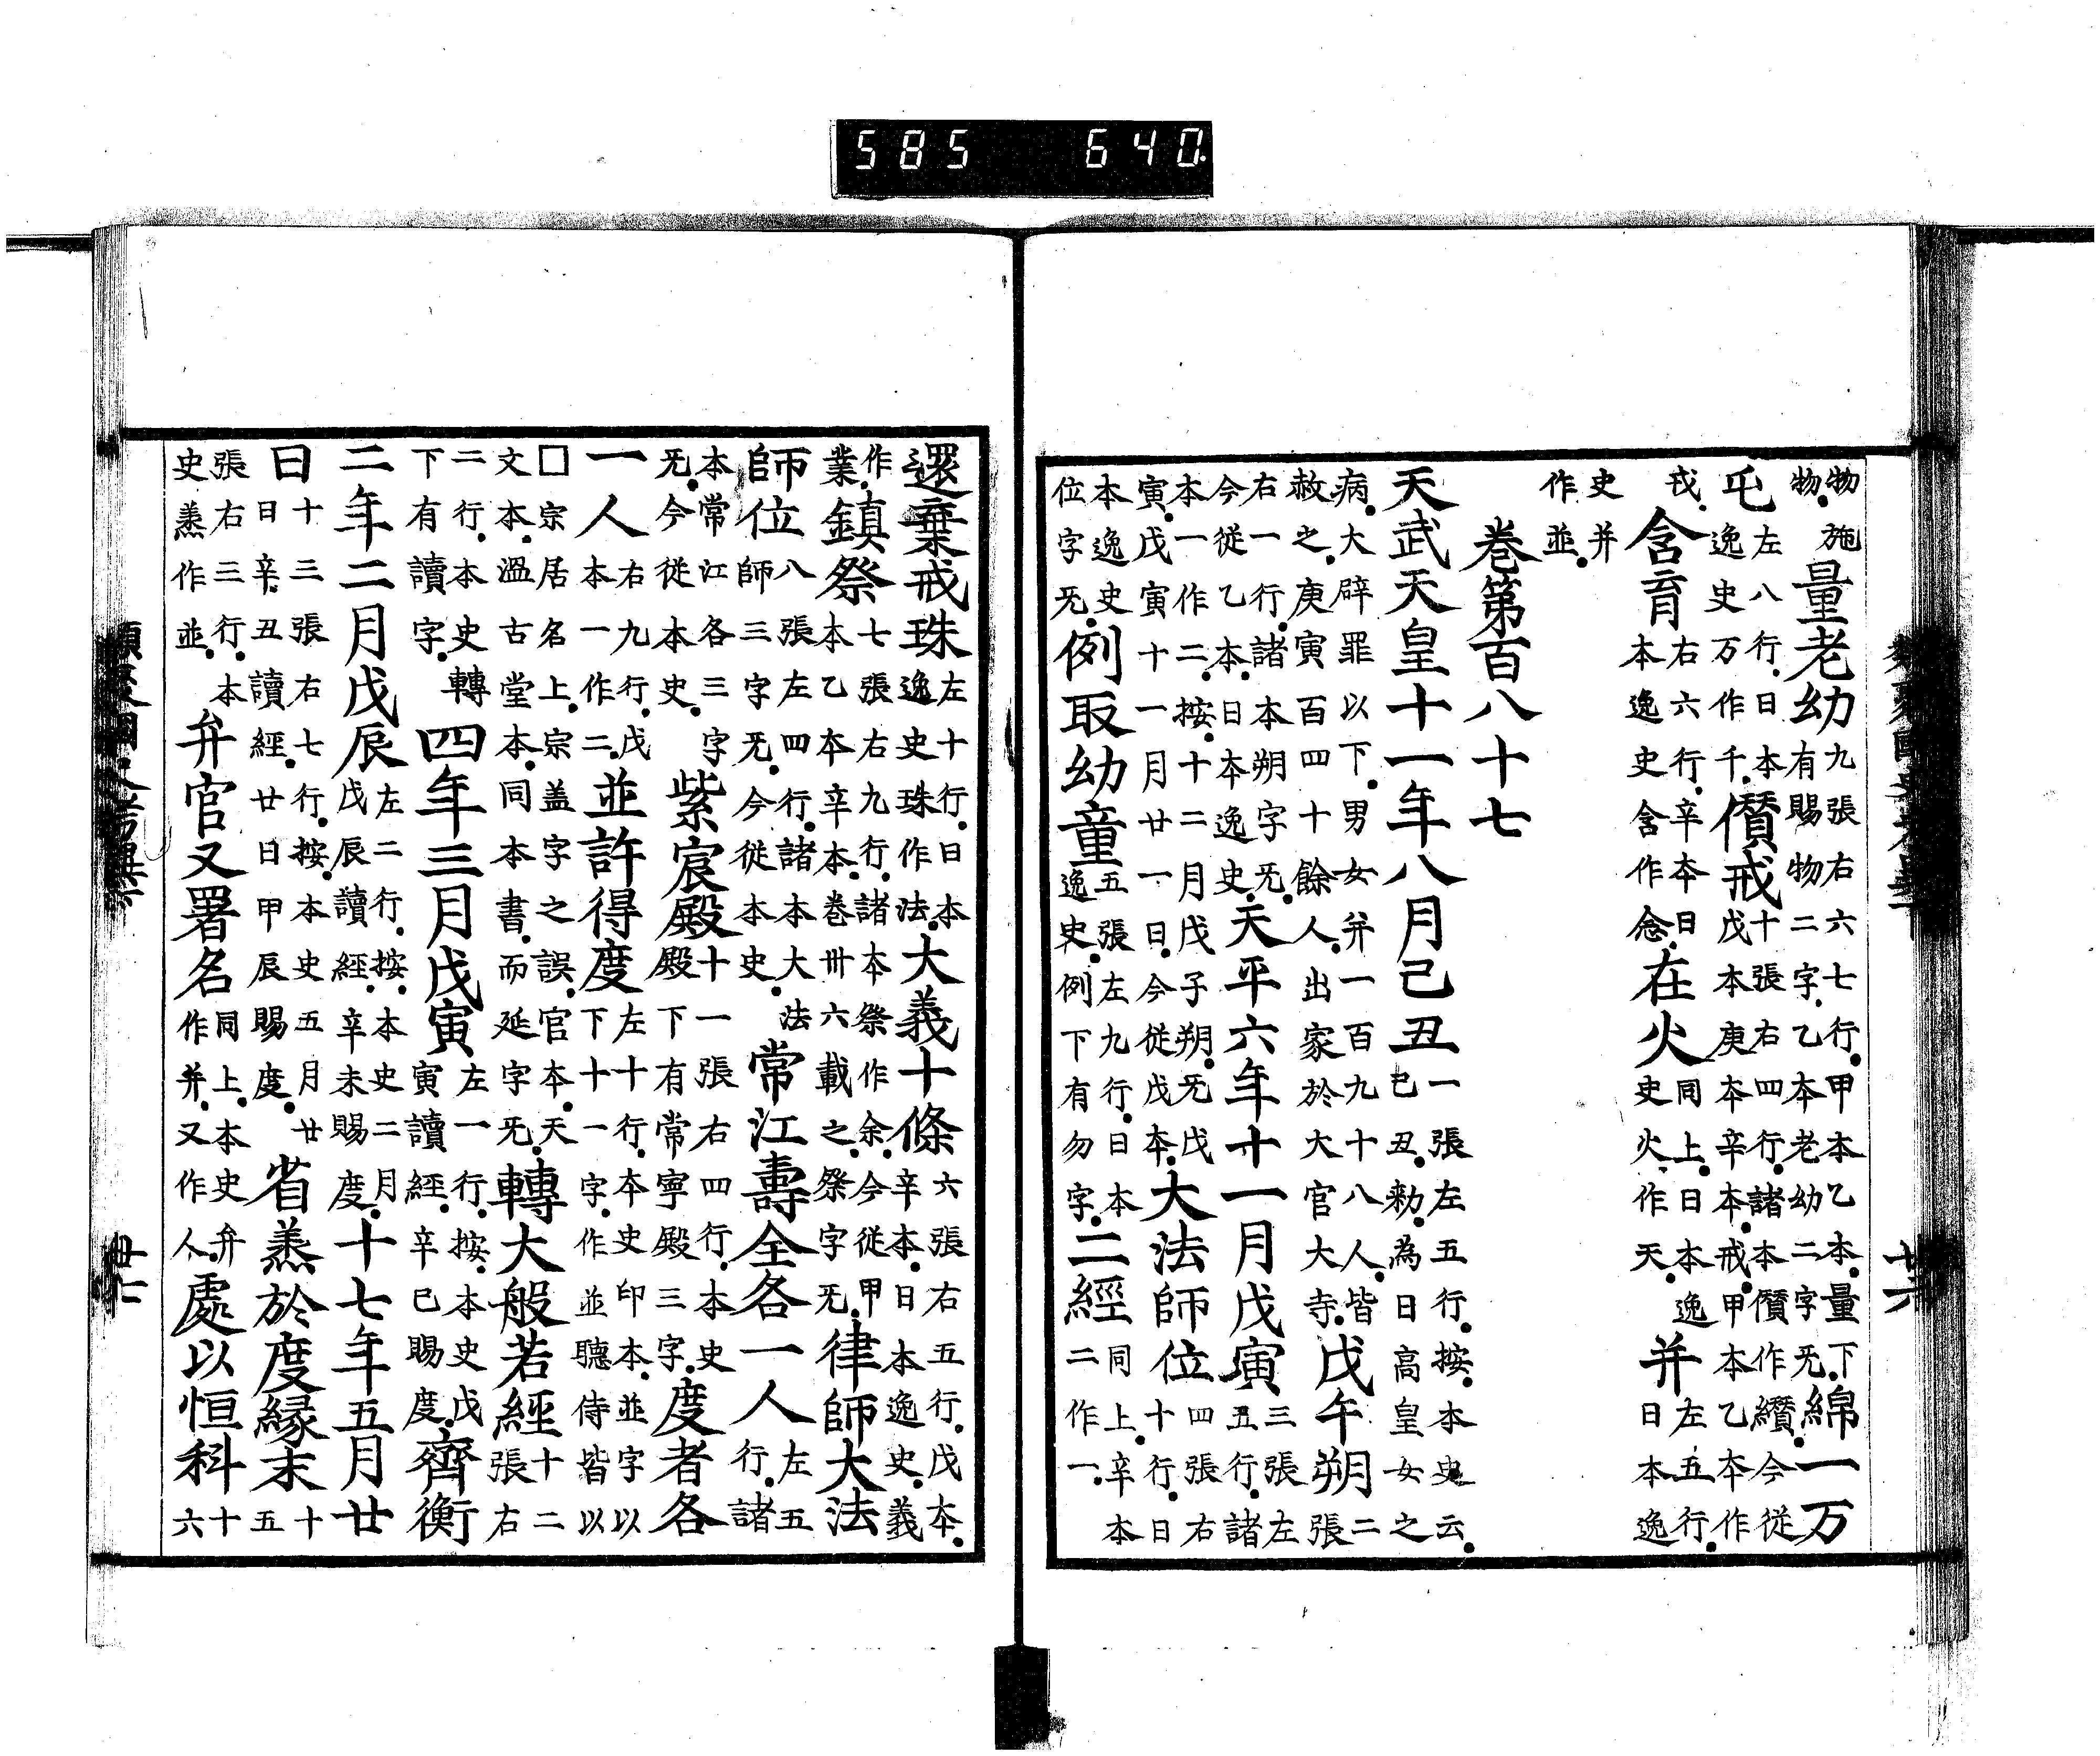 物施物。量老幼九張右六七行。甲本乙本。量下有賜物二字。乙本老幼二字无。綿一万
屯左八行。日本逸史万作千。儧戒十張右四行。諸本儧作纘。今從戊本庚本辛本。戒。甲本乙本作
戎。含育右六行。辛本日本逸史含作念。在火同上。日本逸史火作天。并左五行。日本逸
史并作並。
卷第百八十七
天武天皇十一年八月己丑一張左五行。按。本史云。己丑。勅。為日高皇女之
病。大辟罪以下。男女并一百九十八人。皆赦之。庚寅百四十餘人。出家於大官大寺。戊午朔二張
右一行。諸本朔字无。今從乙本。日本逸史。天平六年十一月戊寅三張左五行。諸
本一作二。按。十二月戊子朔。无戊寅。戊寅十一月廿一日。今從戊本。大法師位四張右十行。日
本逸史位字无。例取幼童五張左九行。日本逸史。例下有勿字。二經同上。辛本二作一。
還棄戒珠左十行。日本逸史珠作法。大義十條六張右五行。戊本。辛本。日本逸史。義
作業。鎮祭七張右九行。諸本祭作余。今從甲本乙本辛本。卷卅六載之。祭字无。律師大法
師位八張左四行。諸本大法師三字无。今從本史。常江壽全各一人左五行。諸
本常江各三字无。今從本史。紫宸殿十一張右四行。本史殿下有常寧殿三字。度者各
一人右九行。戊本一作二。並許得度左十行。本史印本。並字以下十一字。作並聽侍皆以
□宗居名上。宗盖字之誤。官本。天文本。溫古堂本。同本書。而延字无。轉大般若經十二張右
二行。本史轉下有讀字。四年三月戊寅左一行。按。本史戊寅讀經。辛巳賜度。齊衡
二年二月戊辰左二行。按。本史二月戊辰讀經。辛未賜度。十七年五月廿
日十三張右七行。按。本史五月廿日辛丑讀經。廿日甲辰賜度。省𤋎於度縁末十五
張右三行。本史𤋎作並。弁官又署名同上。本史弁作并。又作人。處以恒科十六
585 640